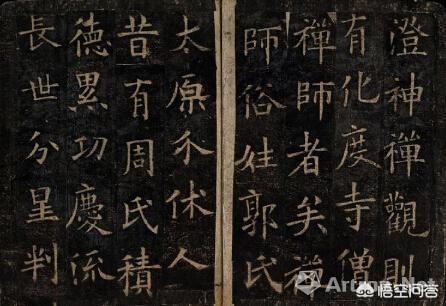 澄神禪觀則
有化度寺僧
禪師者矣禪
師俗姓郭氏
太原介休人
昔有周氏積
德累功慶流
長世分星判
悟空问答